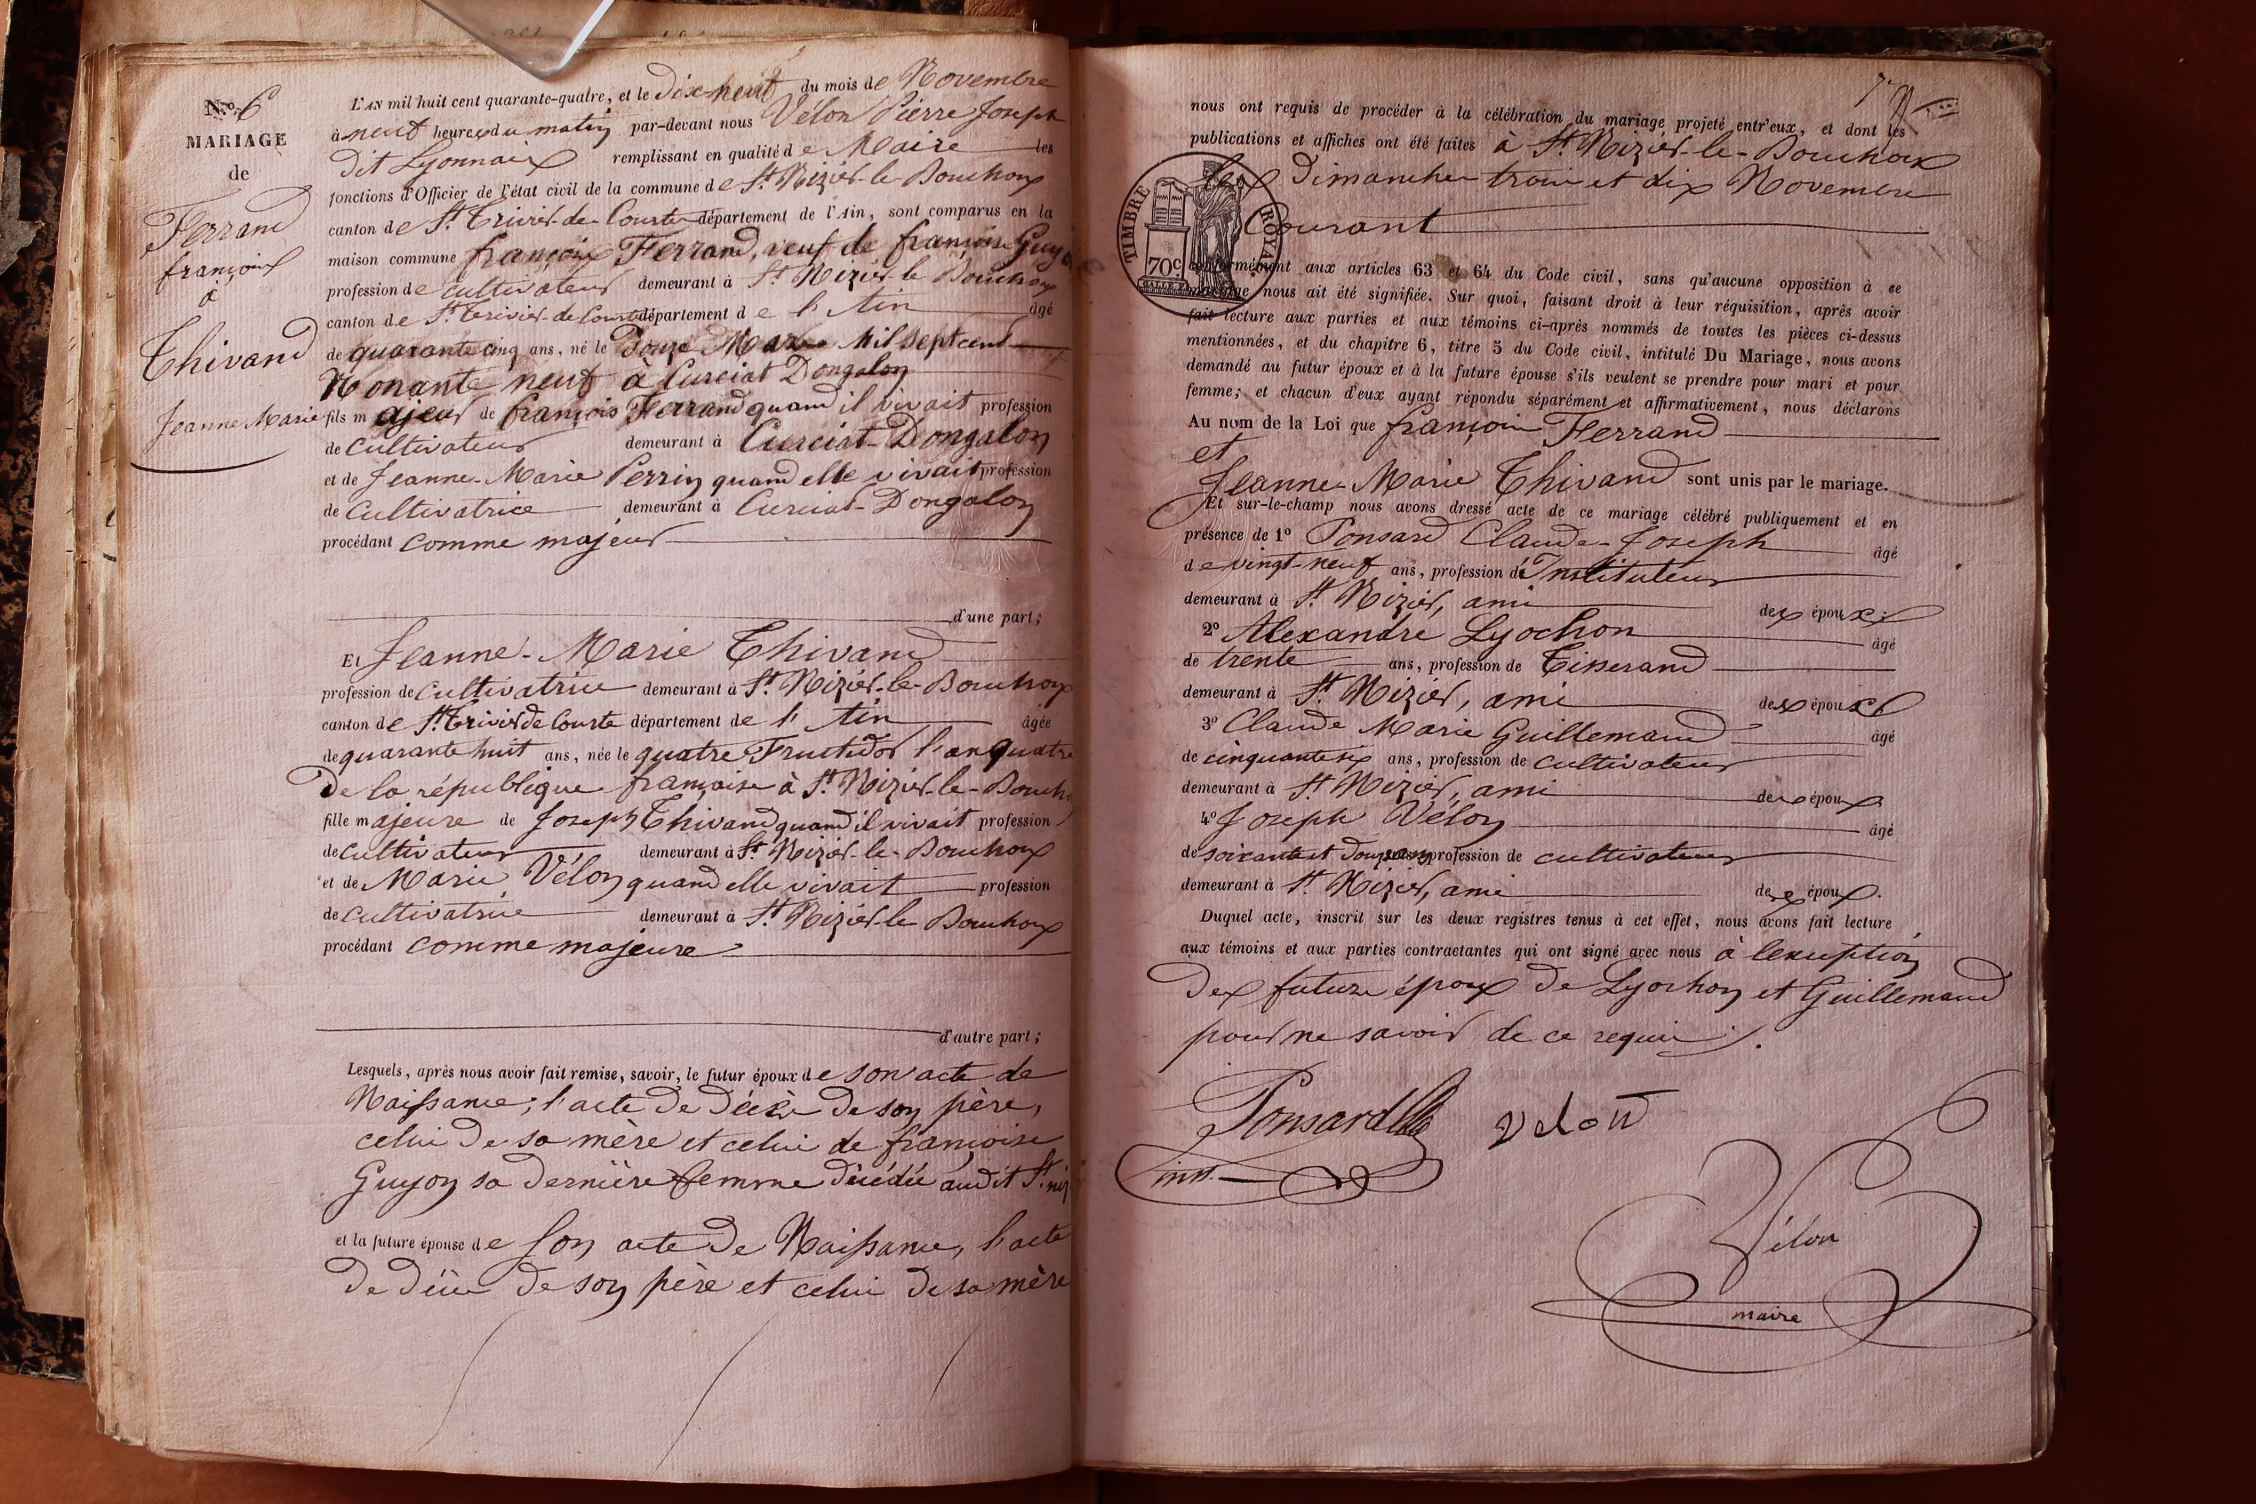 N.o 6
MARIAGE
de
Ferrand
françois
à
Thivand
Jeanne Marie
L'AN mil huit cent quarante-quatre, et le Dix-neuf du mois de Novembre
à neuf heures du matin par-devant nous Vélon Pierre Joseph
dit Lyonnais remplissant en qualité de Maire les
fonctions d'Officier de l'état civil de la commune de St. Nizier-le Bouchoux
canton de St. Trivier de Courtes département de l'Ain, sont comparus en la
maison commune françois Ferrand, veuf de françoise Guyon
profession de cultivateur demeurant à St. Nizier le Bouchoux
canton de St. Trivier-de Courtes département de l'Ain âgé
de quarante cinq ans, né le Douze Mars Mil sept cent
Nonante neuf à Curciat Dongalon
fils majeur de françois Ferrand quand il vivait profession
de cultivateur demeurant à Curciat-Dongalon
et de Jeanne-Marie Perrin quand elle vivait profession
de Cultivatrice demeurant à Curciat-Dongalon
procédant comme majeur
d'une part;
Et Jeanne-Marie Thivand
profession de cultivatrice demeurant à St. Nizier-le-Bouchoux
canton de St. Trivier de Courtes département de l'Ain âgée
de quarante huit ans, née le quatre Fructidor l'an quatre
de la république française à St. Nizier-le-Bouch
fille majeure de Joseph Thivand quand il vivait profession
de cultivateur demeurant à St. Nizier-le-Bouchoux
et de Marie Vélon quand elle vivait profession
de cultivatrice demeurant à St. Nizier-le Bouchoux
procédant comme majeure
d'autre part;
Lesquels, après nous avoir fait remise, savoir, le futur époux de son acte de
Naissance, l'acte de décès de son père,
celui de sa mère et celui de françoise
Guyon sa dernière femme décédée audit St. niz
et la future épouse de son acte de Naissance, l'acte
de décès de son père et celui de sa mère
nous ont requis de procéder à la célébration du mariage projeté entr'eux, et dont les
publications et affiches ont été faites à St. Nizier-le-Bouchoux
les Dimanches trois et dix Novembre
Courant
TIMBRE ROYAL
70c.
conformément aux articles 63 et 64 du Code civil, sans qu'aucune opposition à ce
mariage nous ait été signifiée. Sur quoi, faisant droit à leur réquisition, après avoir
fait lecture aux parties et aux témoins ci-après nommés de toutes les pièces ci-dessus
mentionnées, et du chapitre 6, titre 5 du Code civil, intitulé Du Mariage, nous avons
demandé au futur époux et à la future épouse s'ils veulent se prendre pour mari et pour
femme; et chacun d'eux ayant répondu séparément et affirmativement, nous déclarons
Au nom de la Loi que françois Ferrand
et
Jeanne-Marie Thivand sont unis par le mariage.
Et sur-le-champ nous avons dressé acte de ce mariage célébré publiquement et en
présence de 1o Ponsard Claude-Joseph âgé
de vingt-neuf ans, profession d'Instituteur
demeurant à St. Nizier, ami des époux;
2o Alexandre Lyochon âgé
de trente ans, profession de Tisserand
demeurant à St. Nizier, ami des époux
3o Claude Marie Guillemaud âgé
de cinquante six ans, profession de cultivateur
demeurant à St. Nizier, ami des époux
4o Joseph Vélon âgé
de soixante et douze ans, profession de cultivateur
demeurant à St. Nizier, ami des époux.
Duquel acte, inscrit sur les deux registres tenus à cet effet, nous avons fait lecture
aux témoins et aux parties contractantes qui ont signé avec nous à l'exception
des futurs époux de Lyochon et Guillemaud
pour ne savoir de ce requis.
Ponsard
inst.
velon
Vélon
maire